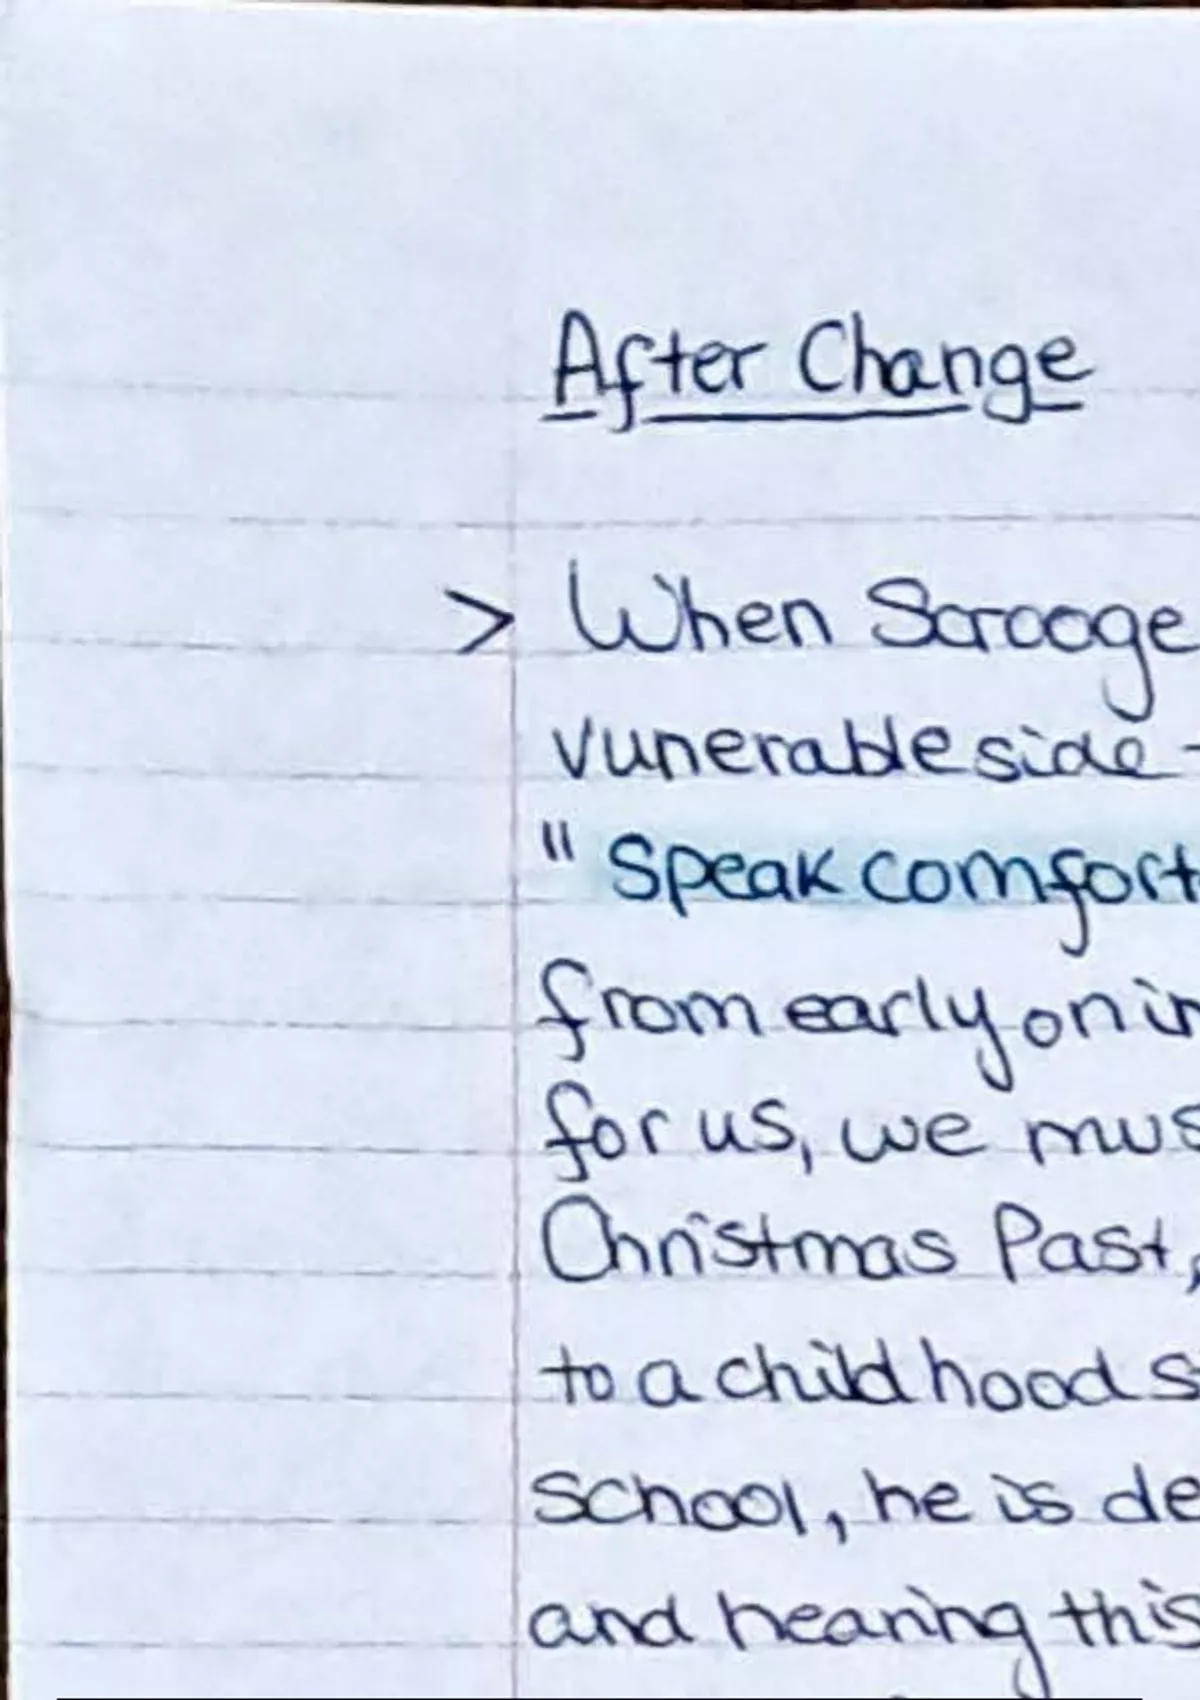 After Change
> When Scrooge
vunerable side -
" Speak comfort
from early on in
for us, we mus
Christmas Past,
to a childhood s
school, he is de
and hearing this